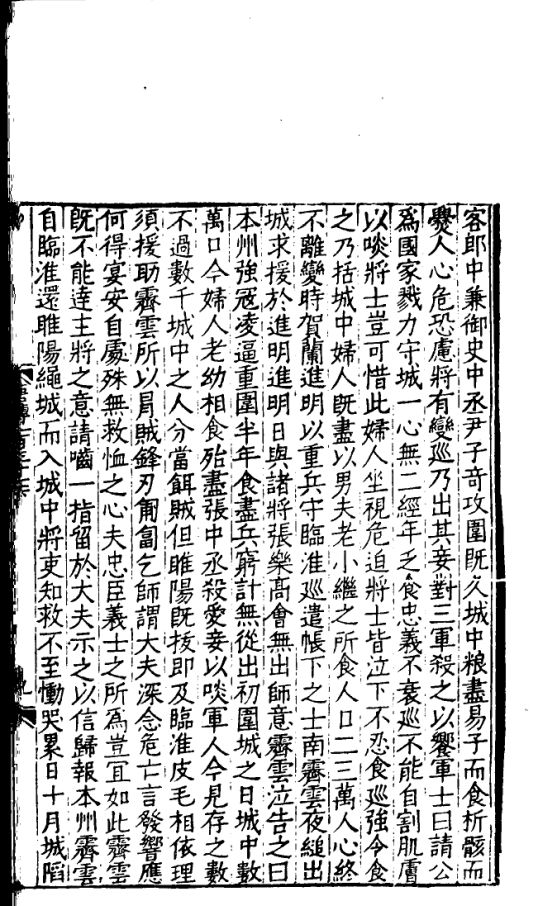 客郎中兼御史中丞尹子奇攻圍既久城中粮盡易子而食析骸而
爨人心危恐慮將有變巡乃出其妾對三軍殺之以饗軍士曰請公
爲國家戮力守城一心無二經年乏食忠義不衰巡不能自割肌膚
以啖將士豈可惜此婦人坐視危迫將士皆泣下不忍食巡強令食
之乃括城中婦人既盡以男夫老小繼之所食人口二三萬人心終
不離變時賀蘭進明以重兵守臨淮巡遣帳下之士南霽雲夜縋出
城求援於進明進明日與諸將張樂高會無出師意霽雲泣告之曰
本州強寇凌逼重圍半年食盡兵窮計無從出初圍城之日城中數
萬口今婦人老幼相食殆盡張中丞殺愛妾以啖軍人今見存之數
不過數千城中之人分當餌賊但睢陽既拔即及臨淮皮毛相依理
須援助霽雲所以冒賊鋒刃匍匐乞師謂大夫深念危亡言發響應
何得宴安自處殊無救恤之心夫忠臣義士之所爲豈宜如此霽雲
既不能達主將之意請嚙一指留於大夫示之以信歸報本州霽雲
自臨淮還睢陽繩城而入城中將吏知救不至慟哭累日十月城陷